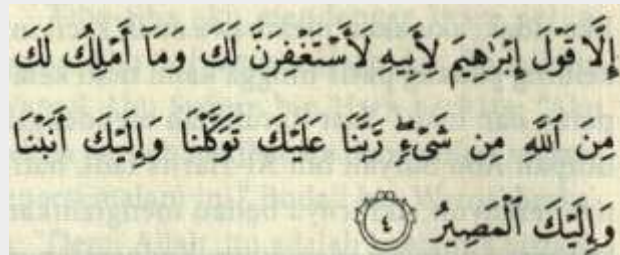 إِلَّا قَوْلَ إِبْرَٰهِيمَ لِأَبِيهِ لَأَسْتَغْفِرَنَّ لَكَ وَمَآ أَمْلِكُ لَكَ
مِنَ ٱللَّهِ مِن شَىْءٍۖ رَّبَّنَا عَلَيْكَ تَوَكَّلْنَا وَإِلَيْكَ أَنَبْنَا
وَإِلَيْكَ ٱلْمَصِيرُ ٤